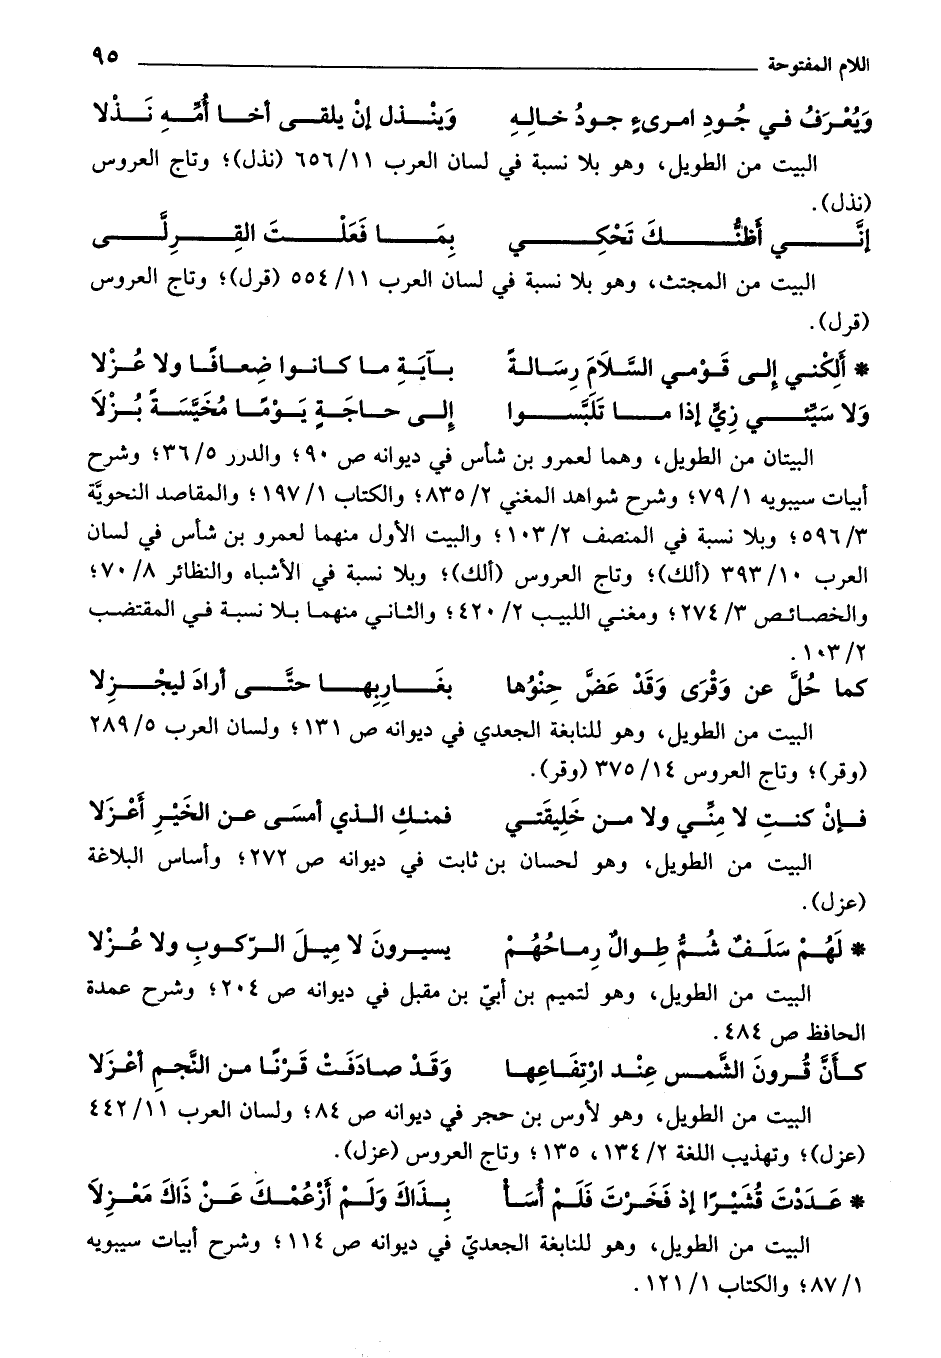 اللام المفتوحة ٩٥
وَيُعْرَفُ في جُودِ امرىءٍ جودُ خالِهِ وَيَنْذل إنْ يلقى أخا أُمِّهِ نَذْلا
البيت من الطويل، وهو بلا نسبة في لسان العرب ١١/ ٦٥٦ (نذل)؛ وتاج العروس
(نذل).
إنَّي أَظنُّكَ تَحْكِي بِمَا فَعَلْتَ القِرِلَّى
البيت من المجتث، وهو بلا نسبة في لسان العرب ١١/ ٥٥٤ (قرل)؛ وتاج العروس
(قرل).
* أَلِكْني إلى قَوْمي السَّلاَمَ رِسَالةً بآيَةِ ما كانوا ضِعافًا ولا عُزْلا
وَلا سَيِّئي زِيٍّ إذا ما تَلَبَّسوا إلى حاجَةٍ يَوْمًا مُخَيَّسَةً بُزْلاَ
البيتان من الطويل، وهما لعمرو بن شأس في ديوانه ص ٩٠؛ والدرر ٥/ ٣٦؛ وشرح
أبيات سيبويه ١/ ٧٩؛ وشرح شواهد المغني ٢/ ٨٣٥؛ والكتاب ١/ ١٩٧؛ والمقاصد النحويَّة
٣/ ٥٩٦؛ وبلا نسبة في المنصف ٢/ ١٠٣؛ والبيت الأول منهما لعمرو بن شأس في لسان
العرب ١٠/ ٣٩٣ (ألك)؛ وتاج العروس (ألك)؛ وبلا نسبة في الأشباه والنظائر ٨/ ٧٠؛
والخصائص ٣/ ٢٧٤؛ ومغني اللبيب ٢/ ٤٢٠؛ والثاني منهما بلا نسبة في المقتضب
٢/ ١٠٣.
كما حُلَّ عن وَقْرَى وَقَدْ عَضَّ حِنْوُها بغَارِبِها حتَّى أرادَ ليجْزِلا
البيت من الطويل، وهو للنابغة الجعدي في ديوانه ص ١٣١؛ ولسان العرب ٥/ ٢٨٩
(وقر)؛ وتاج العروس ١٤/ ٣٧٥ (وقر).
فإنْ كنتِ لا مِنِّي ولا من خَلِيقَتي فمنكِ الذي أمسَى عن الخَيْرِ أَعْزَلا
البيت من الطويل، وهو لحسان بن ثابت في ديوانه ص ٢٧٢؛ وأساس البلاغة
(عزل).
* لَهُمْ سَلَفٌ شُمٌّ طِوالٌ رِماحُهُمْ يسيرونَ لا مِيلَ الرّكوبِ ولا عُزْلا
البيت من الطويل، وهو لتميم بن أبيّ بن مقبل في ديوانه ص ٢٠٤؛ وشرح عمدة
الحافظ ص ٤٨٤.
كأنَّ قُرونَ الشَّمس عِنْد ارْتِفَاعِها وَقَدْ صادَفَتْ قَرْنًا من النَّجمِ أعْزَلا
البيت من الطويل، وهو لأوس بن حجر في ديوانه ص ٨٤؛ ولسان العرب ١١/ ٤٤٢
(عزل)؛ وتهذيب اللغة ٢/ ١٣٤، ١٣٥؛ وتاج العروس (عزل).
* عَدَدْتَ قُشَيْرًا إذ فَخَرْتَ فَلَمْ أُسَأْ بِذَاكَ وَلَمْ أَزْعُمْكَ عَنْ ذَاكَ مَعْزِلاَ
البيت من الطويل، وهو للنابغة الجعديّ في ديوانه ص ١١٤؛ وشرح أبيات سيبويه
١/ ٨٧؛ والكتاب ١/ ١٢١.